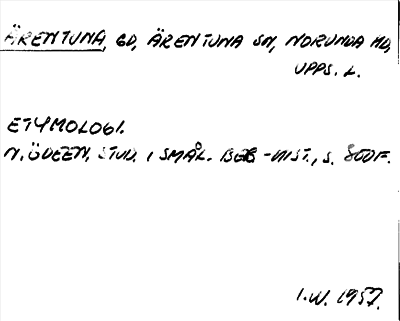 ÄRENTUNA, GD, ÄRENTUNA SN, NORUNDA HD,
UPPS. L.
ETYMOLOGI.
N. ÖDEEN, STUD. I SMÅL. BEB-HIST., S. 800F.
I.W. 1957.